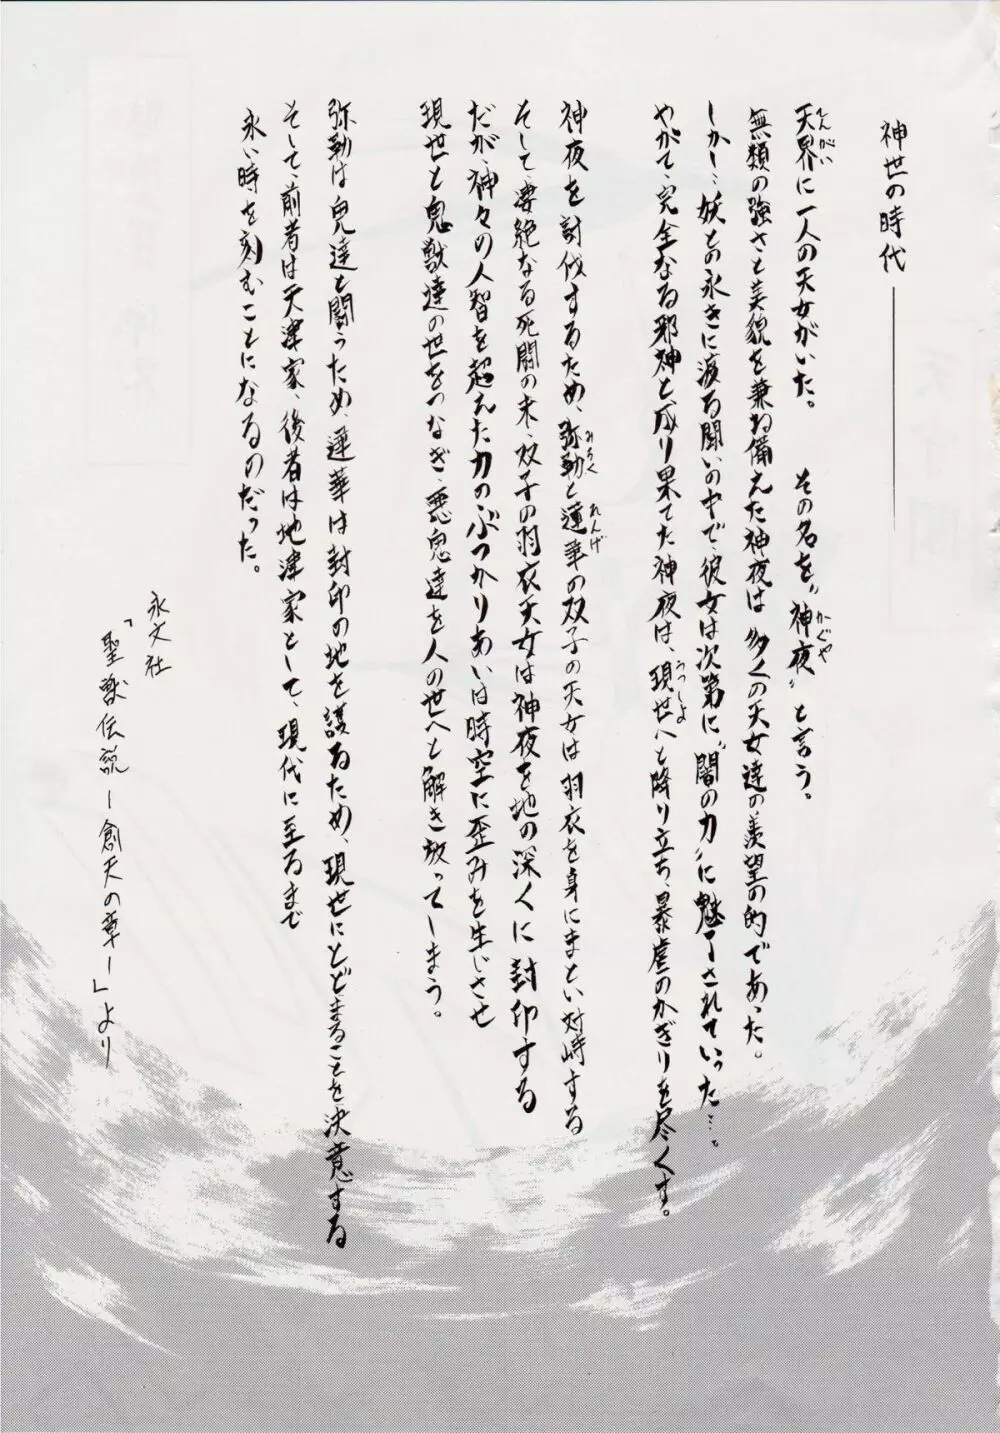 神世の時代――――
天界に一人の天女がいた。　その名を〝神夜〟と言う。
無類の強さと美貌を兼ね備えた神夜は多くの天女達の羨望の的であった。
しかし…妖との永きに渡る闘いの中で、彼女は次第に〝闇の力〟に魅了されていった…。
やがて、完全なる邪神と成り果てた神夜は、現世へと降り立ち、暴虐のかぎりを尽くす。
神夜を討伐するため、弥勒と蓮華の双子の天女は羽衣を身にまとい対峙する
そして、凄絶なる死闘の末、双子の羽衣天女は神夜を地の深くに封印する
だが、神々の人智を超えた力のぶつかりあいは時空に歪みを生じさせ
現世と鬼獣達の世をつなぎ、悪鬼達を人の世へと解き放ってしまう。
弥勒は鬼達と闘うため、蓮華は封印の地を護るため、現世にとどまることを決意する
そして、前者は天津家、後者は地津家として、現代に至るまで
永い時を刻むことになるのだった。
永文社
「聖獣伝説－創天の章－」より
てんがい
かぐや
うつしよ
みろく
れんげ